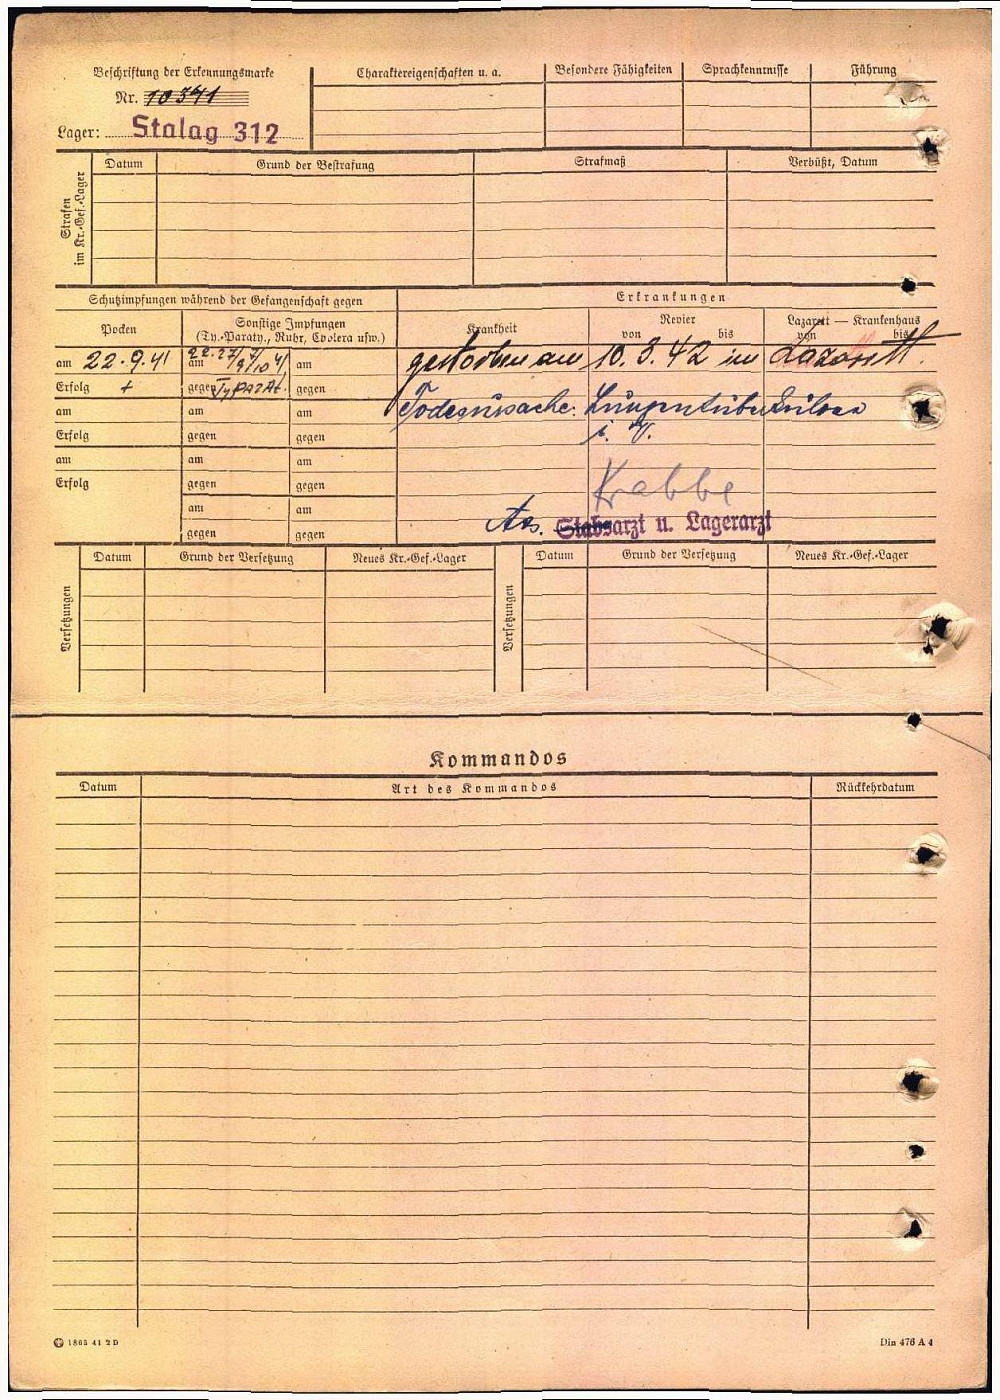 Beschriftung der Erkennungsmarke
Nr. 10341
Lager: Stalag 312
Charaktereigenschaften u. a.
Besondere Fähigkeiten
Sprachkenntnisse
Führung
Strafen im Kr.-Gef.-Lager
Datum
Grund der Bestrafung
Strafmaß
Verbüßt, Datum
Schutzimpfungen während der Gefangenschaft gegen
Erkrankungen
Pocken
Sonstige Impfungen
(Ty.-Paraty., Ruhr, Cholera usw.)
Krankheit
Revier
von bis
Lazarett — Krankenhaus
von bis
am 22.9.41 am am
Erfolg + gegen TyParat. gegen
gestorben am 10.3.42 im Lazarett.
Todesursache: Lungentuberkulose
i. V.
Krabbe
Ass. Stabsarzt u. Lagerarzt
am am am
Erfolg gegen gegen
am am am
Erfolg gegen gegen
am am
gegen gegen
Versetzungen
Datum
Grund der Versetzung
Neues Kr.-Gef.-Lager
Versetzungen
Datum
Grund der Versetzung
Neues Kr.-Gef.-Lager
Kommandos
Datum
Art des Kommandos
Rückkehrdatum
1865 41 2 D
Din 476 A 4